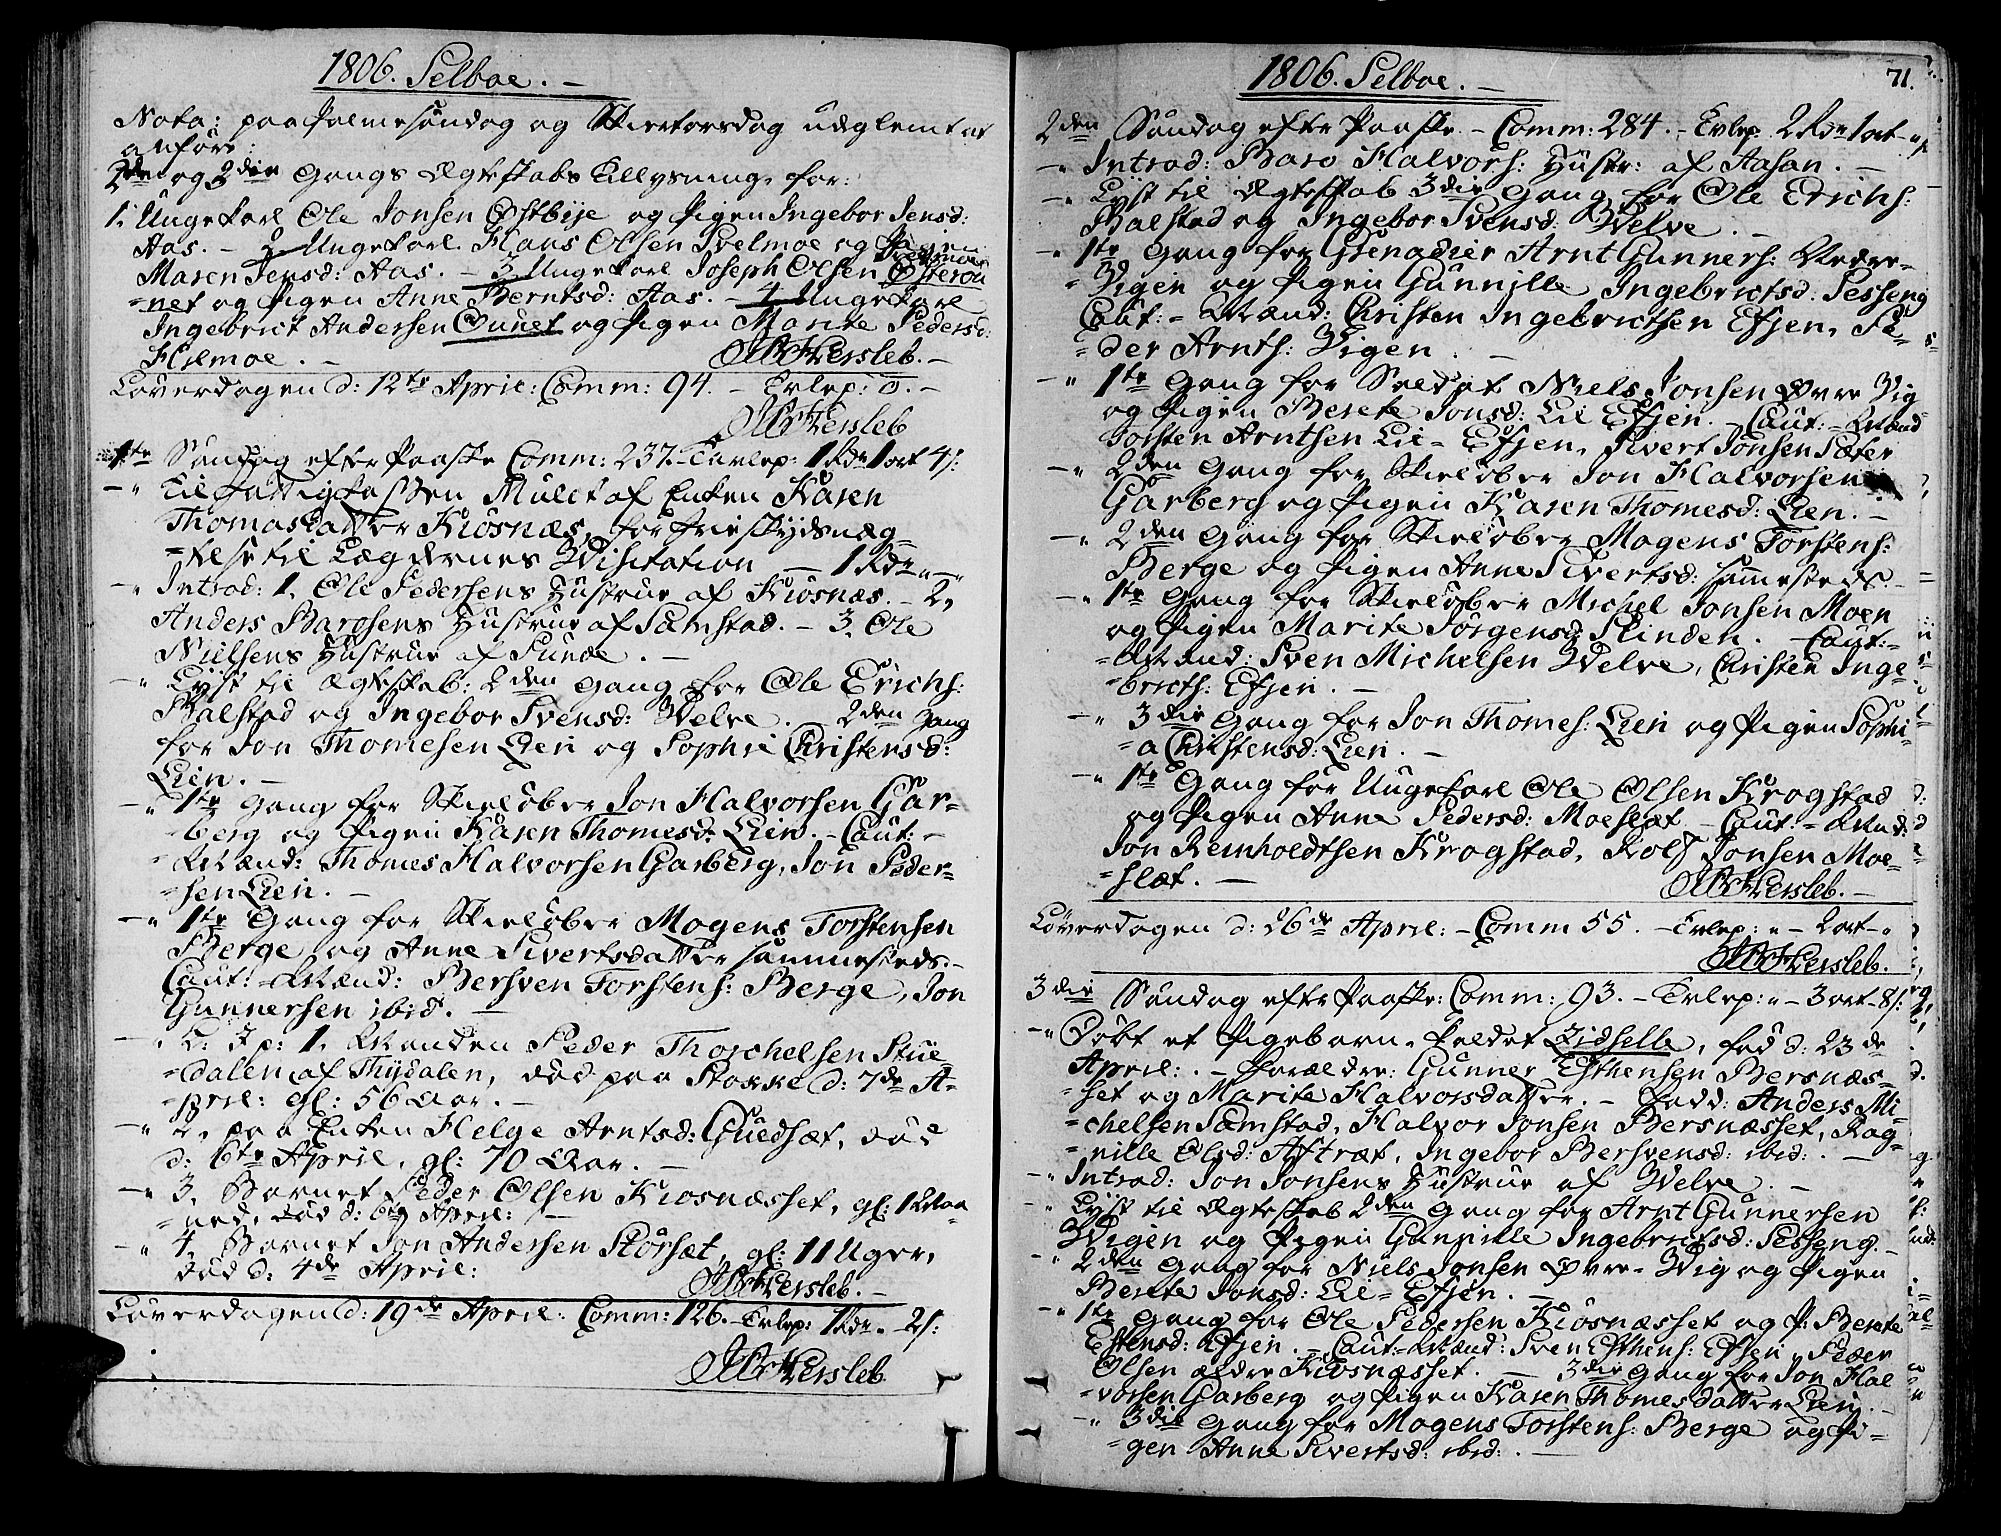 1806. Selboe. –
Nota: paa Palmesöndag og Skiertorsdag udglemt at
anföre:
2den og 3die Gangs Ægteskabs Tillysning, for:
1. Ungekarl Ole Jonsen Østbÿe og Pigen Ingebor Jensd:
Aas. – 2 Ungekarl Hans Olsen Selmoe og Pigen
Maren Jensd: Aas. – 3 Ungekarl Joseph Olsen Østerou
net og Pigen Anne Berntsd: Aas. – 4 Ungekarl
Ingebrict Andersen Ounet og Pigen Marite Pedersd:
Hilmoe. –
Hersleb. –
Löverdagen d: 12te April: Comm: 94. – Tvlep: 0. –
Hersleb
1te Søndag efter Paaske Comm: 237. – Tavlep: 1 Rdr 1 ort 4 s:
–" Til Fattigkassen Mulct af Enken Karen
Thomasdatter Kiösnæs, for Frieskÿdsnæg-
-telse til Lægdernes Visitation – 1 Rdr " – "
–" Introd: 1. Ole Pedersens Hustrue af Kiösnæs. – 2,
Anders Barosens Hustrue af Samstad. – 3. Ole
Nielsens Hustrue af Sunde. –
–" Lÿst til Ægteskab: 2den Gang for Ole Erichs:
Balstad og Ingebor Svensd: Velve. – 2den Gang
for Jon Thomesen Lien og Sophie Christensd:
Lien. –
–" 1te Gang for Skielöber Jon Halvorsen Gar-
-berg og Pigen Karen Thomesd: Lien. – Caut: –
-Mænd: Thomes Halvorsen Garberg, Jon Peder-
-sen Lien. –
–" 1te Gang for Skielöber Mogens Torstensen
Berge, og Anne Sivertsdatter sammesteds. –
Caut: Mænd: Bersven Torstens: Berge, Jon
Gunnersen ibid. –
–" J: p: 1. Manden Peder Thorchelsen Stue
-dalen af Thÿdalen, död paa Stokke d: 7de A-
-pril: gl: 56 Aar. –
–" 2, paa Enken Helge Arntsd: Guldsæt, död
d: 6te April, gl: 70 Aar. –
–" 3. Barnet Peder Olsen Kiösnæsset, gl: 1 Maa-
ned, död d: 6te April: –
–" 4. Barnet Jon Andersen Störsæt, gl: 11 Uger,
död d: 4de April:
Hersleb. –
Löverdagen d: 19de April: Comm: 126. – Tvlep: 1 Rdr. – 2 s:
Hersleb
1806. Selboe. –
71.
2den Søndag efter Paaske – Comm: 284. – Tvlep: 2 Rdr 1 ort –
–" Introd: Baro Halvors: Hustr: af Aasan. –
–" Lÿst til Ægteskab 3die Gang for Ole Erichs:
Balstad og Ingebor Svensd: Velve. –
–" 1te Gang for Grenadier Arnt Gunners:
-Vigen og Pigen Gunnille Ingebrictsd: Sesseng
Caut: – Mænd: Christen Ingebrictsen Efjen, Pe-
-der Arnts: Vigen. –
–" 1te Gang for Soldat Niels Jonsen Øvre Vig
og Pigen Berete Jonsd: Lil Efjen. – Caut: – Mænd
Torsten Arntsen Lil- Efjen, Sivert Jonsen Sæter
–" 2den Gang for Skielöber Jon Halvorsen
Garberg og Pigen Karen Thomesd: Lien. –
–" 2den Gang for Skielöber Mogens Torstens:
Berge og Pigen Anne Sivertsd: sammesteds. –
–" 1te Gang for Skielöber Michel Jonsen Moen
og Pigen Marite Jörgensd: Slinden. – Caut: –
-Mænd: Sven Michelsen Velve, Christen Inge-
-bricts: Efjen. –
–" 3die Gang for Jon Thomes: Lien og Pigen Sophi-
-a Christensd: Lien. –
–" 1te Gang for Ungekarl Ole Olsen Krogstad
og Pigen Anne Pedersd: Moeslæt – Caut: – Mænd:
Jon Reinholdtsen Krogstad, Rolf Jonsen Moe-
-slæt. –
Hersleb. –
Löverdagen d: 26de April: – Comm 55. – Tvlep: " – 2 ort – "
Hersleb.
3die Søndag efter Paaske: Comm: 93. – Tvlep: " – 3 ort – 8 s:
–" Döbt et Pigebarn, kaldet Zidselle, föd d: 23de
April: . – Forældre: Gunner Esthensen Bersnæs-
-set og Marite Halvorsdatter. – Fadd: Anders Mi-
-chelsen Samstad, Halvor Jonsen Bersnæsset, Rag-
-nille Olsd: Aftræt, Ingebor Bersvensd: ibid: . –
–" Introd: Jon Jonsens Hustrue af Velve. –
–" Lÿst til Ægteskab 2den Gang for Arnt Gunnersen
Vigen og Pigen Gunnille Ingebrictsd: Sesseng. –
–" 2den Gang for Niels Jonsen Øvre- Vig og Pigen
Berete Jonsd: Lil- Efjen. –
–" 1te Gang for Ole Pedersen Kiösnæsset og P: Berete
Estensd: Efjen. – Caut: – Mænd: Sven Esthens: Efjen, Peder
Olsen ældre Kiösnæsset. – 3die Gang for Jon Hal
-vorsen Garberg og Pigen Karen Thomesdatter Lien. –
–" 3die Gang for Mogens Torstens: Berge og Pi-
-gen Anne Sivertsd: ibid: . –